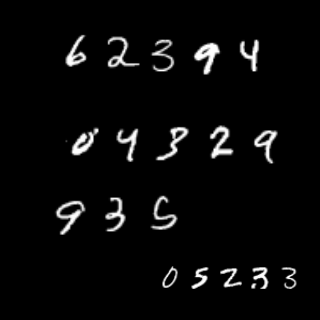 6 2 3 9 4
0 4 3 2 9
9 3 5
0 5 2 3 3